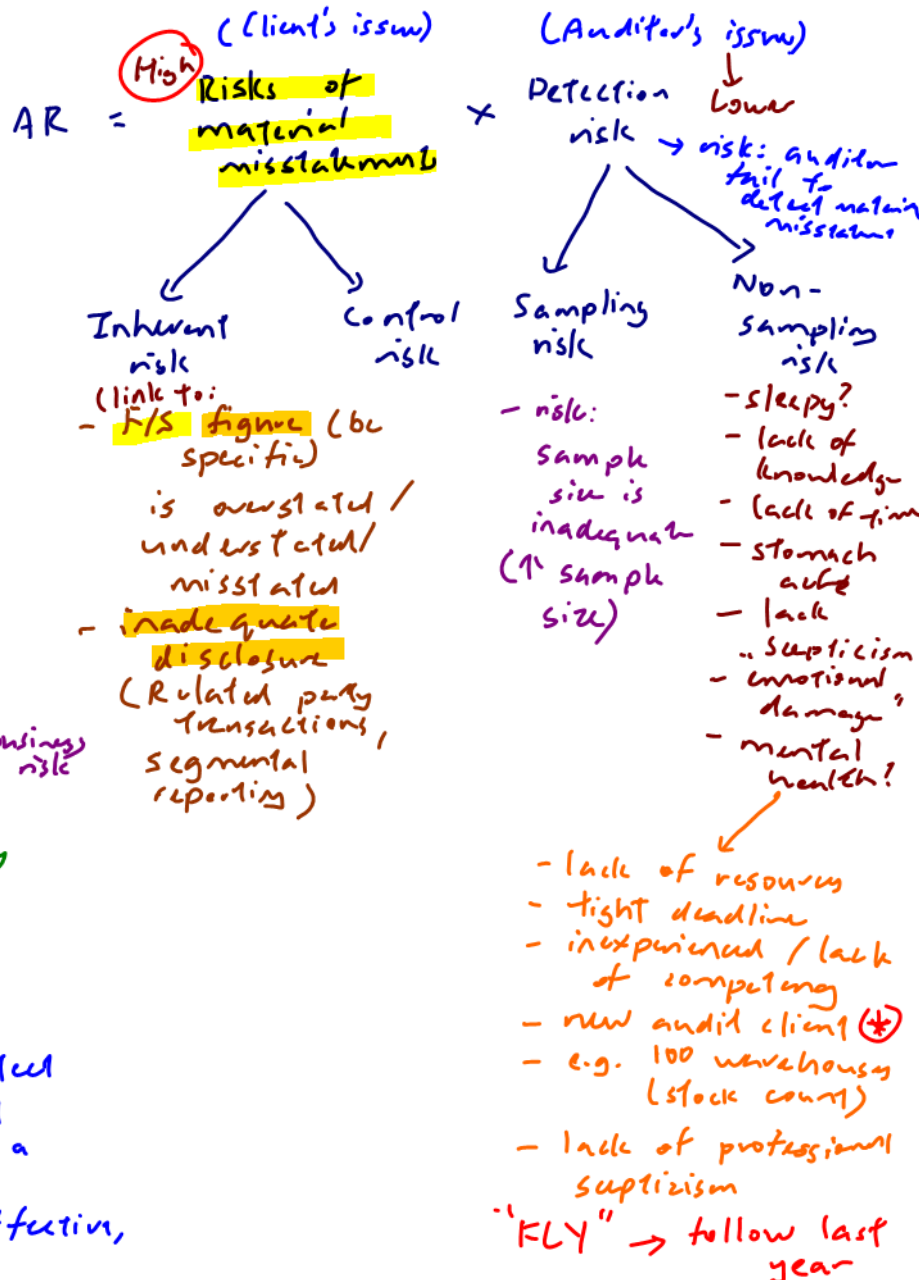 (Client's issue)
(Auditor's issue)
High
AR = Risks of material misstatement × Detection risk
Lower
→ risk: auditor
fail to
detect material
misstatement
Inherent
risk
Control
risk
Sampling
risk
Non-
sampling
risk
(link to:
- F/S figure (be
specific)
is overstated /
understated/
misstated
- inadequate
disclosure
(Related party
transactions,
segmental
reporting)
- risk:
sample
size is
inadequate
(↑ sample
size)
- sleepy?
- lack of
knowledge
- lack of time
- stomach
ache
- lack
scepticism
- "emotional
damage"
- mental
health?
- lack of resources
- tight deadline
- inexperienced / lack
of competency
- new audit client (*)
- e.g. 100 warehouses
(stock count)
- lack of professional
scepticism
"FLY" → follow last
year
business
risk
a